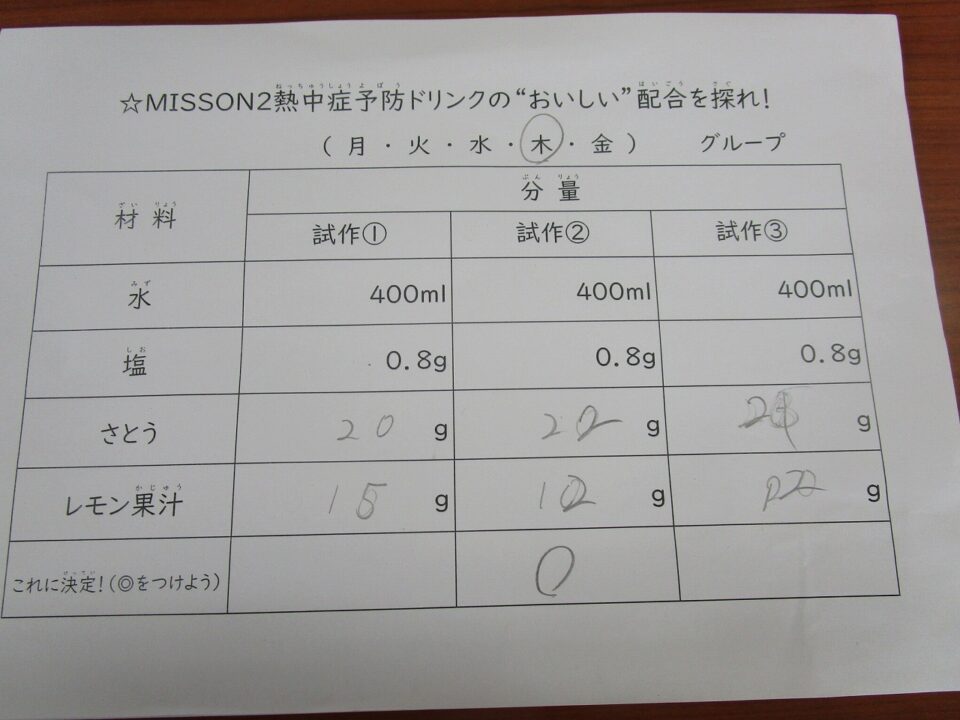 ☆MISSON2熱中症予防ドリンクの“おいしい”配合を探れ!
(月・火・水・木・金) グループ
材料 分量
試作① 試作② 試作③
水 400ml 400ml 400ml
塩 0.8g 0.8g 0.8g
さとう 20 g 22 g 24 g
レモン果汁 15 g 12 g g
これに決定!(◎をつけよう) ○